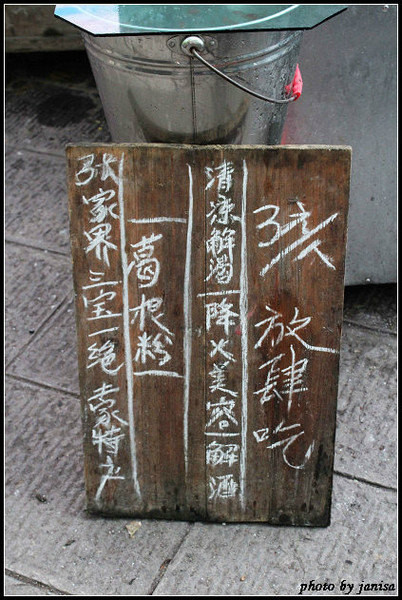 张家界三宝一绝 土家特产
葛根粉
清凉解渴 降火美容 解酒
孩 放肆吃
photo by janisa